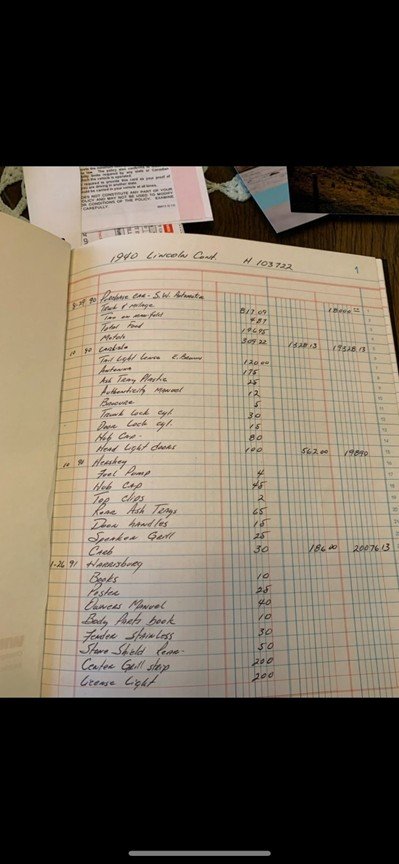 OF THE POLICY. EXAMINE
CAREFULLY.
1940 Lincoln Cont. H 103722 1
90 Purchase Car - S.W. 18000
Truck & Milage 817.09
4.87
Total Food 196.95
Motels 309.22 1328.13 19328.13
10 90 Carlisle
Tail Light Lense E. Brown 120.00
Antenna 175
Ash Tray Plastic 25
Authenticity Manual 12
Brochure 5
Trunk Lock cyl. 30
Door Lock cyl. 15
Hub Cap - 80
Head Light doors 100 562.00 19890
10 91 Hershey
Fuel Pump 4
Hub Cap 45
Top clips 2
Rear Ash Trays 65
Door handles 15
Speaker Grill 25
Carb 30 186.00 20076.13
1-26 91 Harrisburg
Books 10
Poster 25
Owners Manual 40
Body Parts book 10
Fender Stainless 30
Stone Shield Rear - 50
Center Grill strip 200
License Light 200